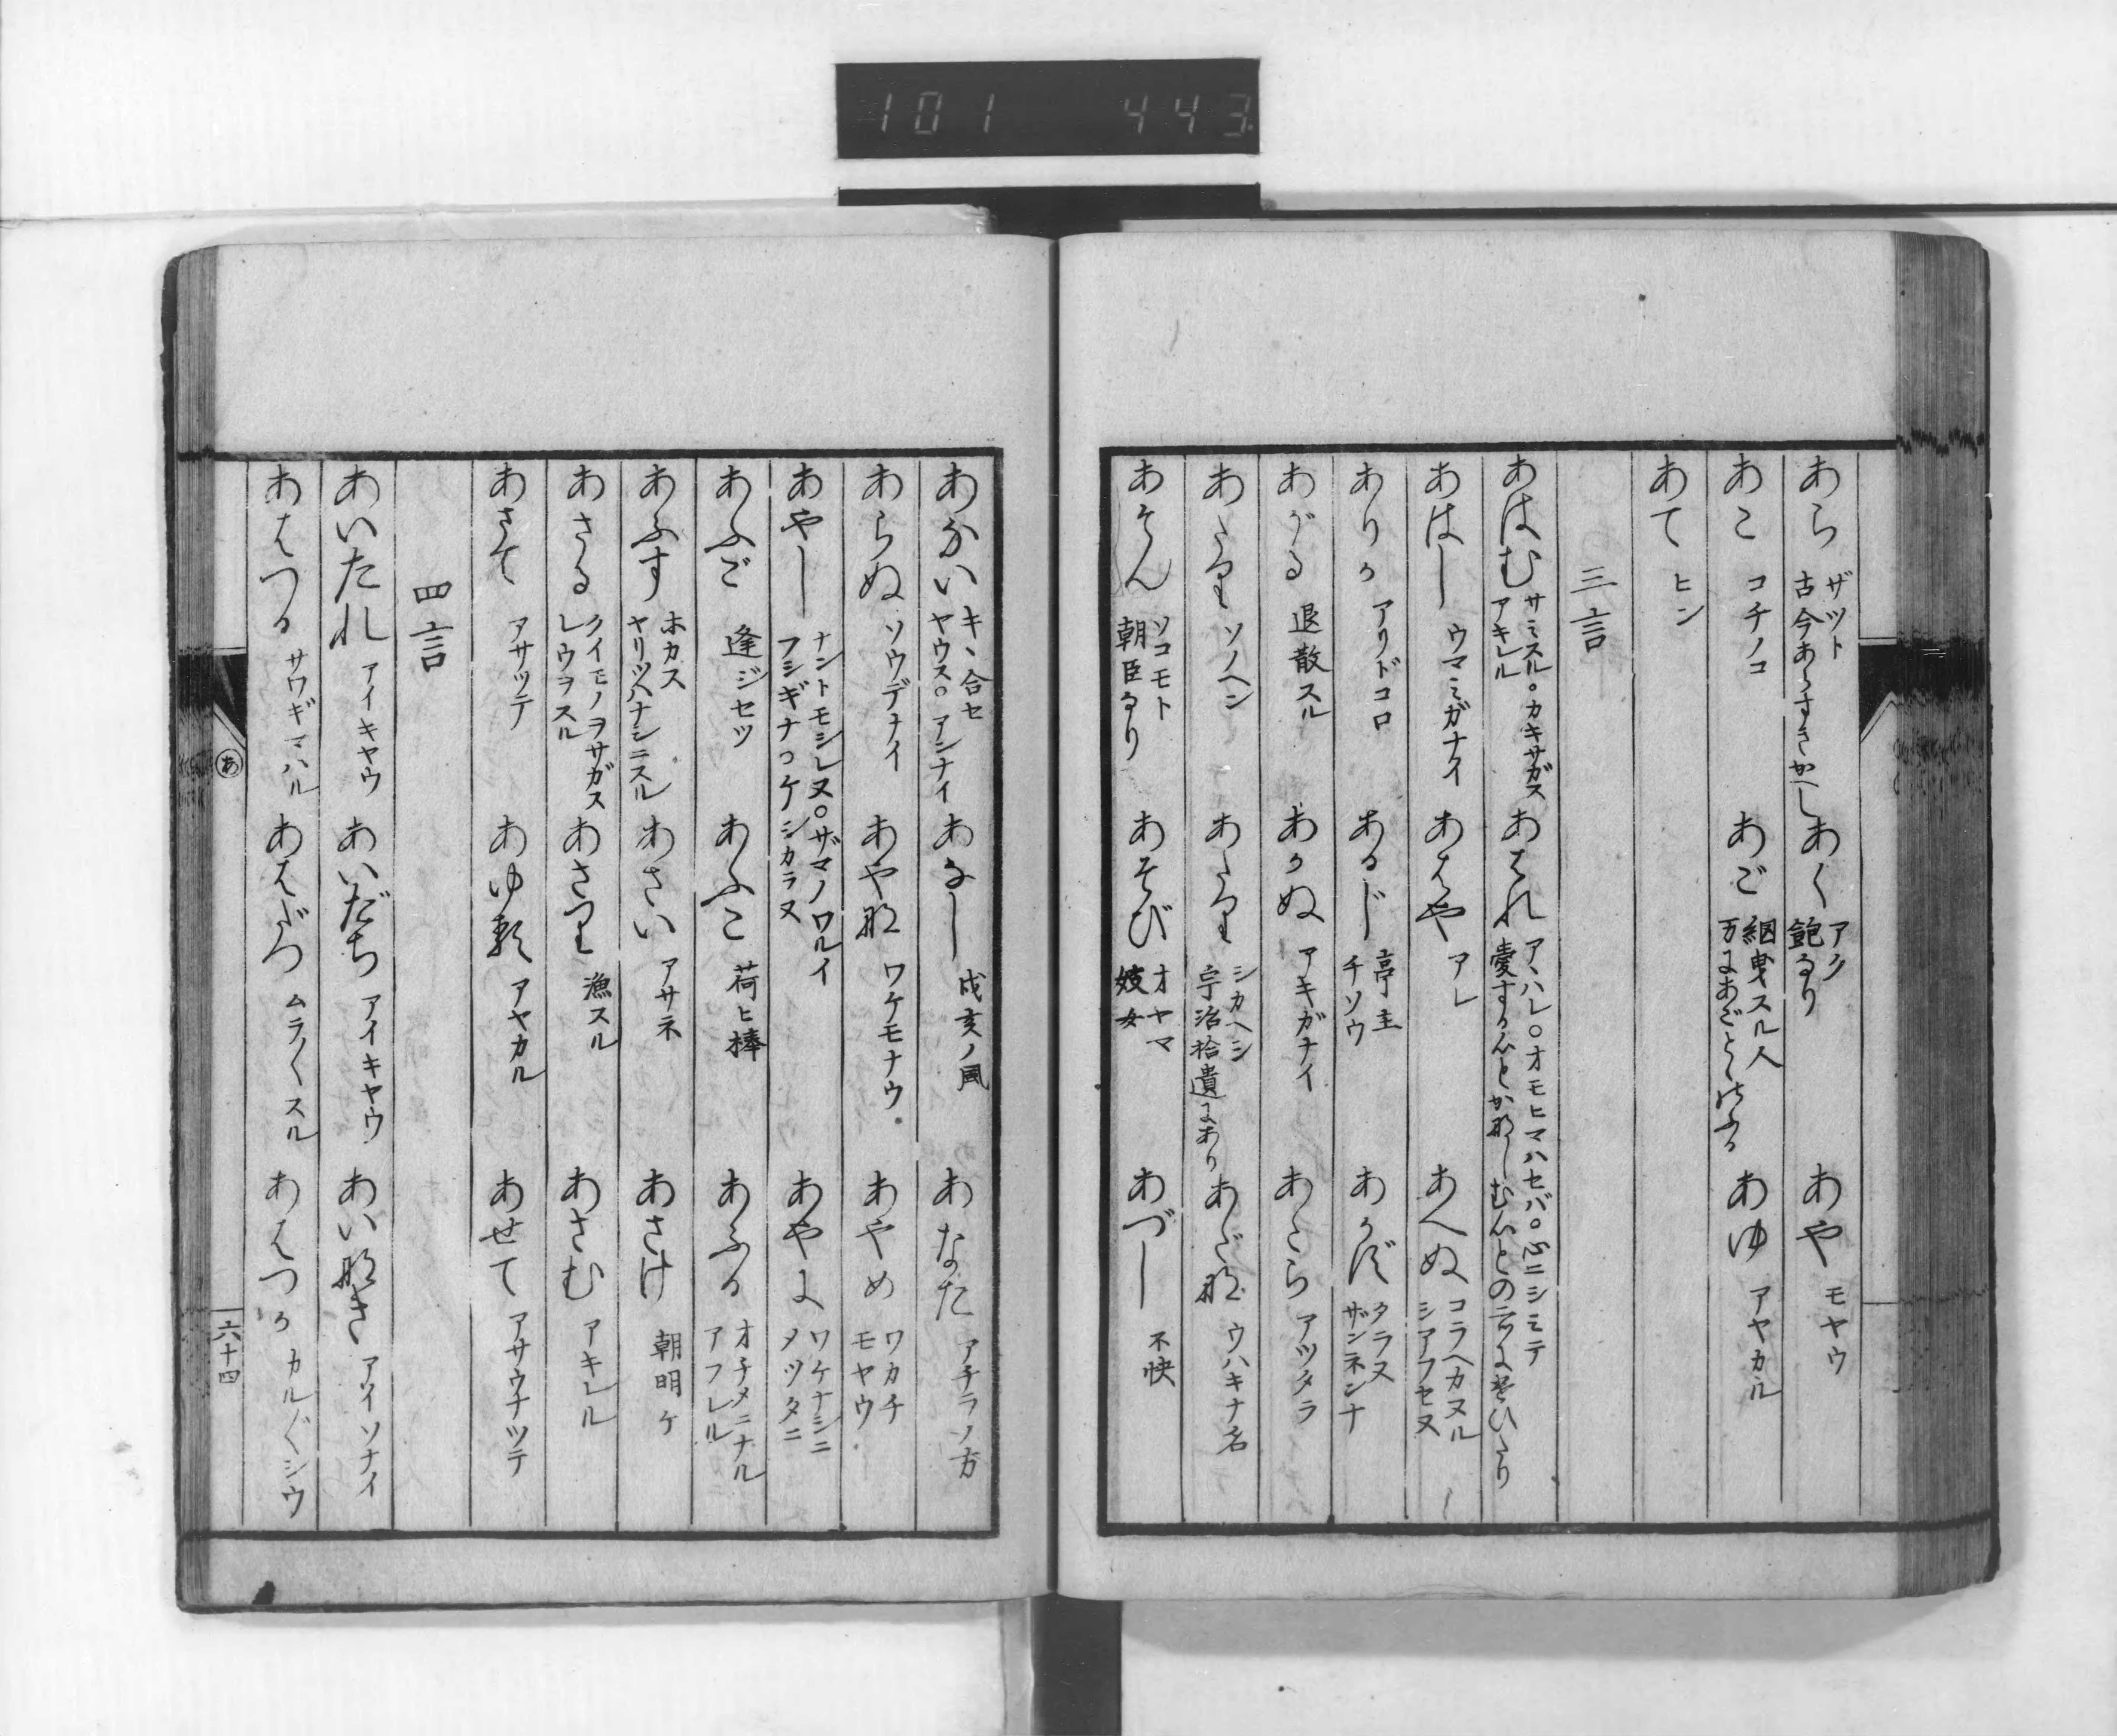 101 443
あら ザツト 古今あらすきかへし
あく アク 飽なり
あや モヤウ
あこ コチノコ
あご 網曳スル人 万にあごとゝのふる
あゆ アヤカル
あて ヒン
三言
あはむ サミスル。カキサガス アキレル
あはれ アヽハレ○オモヒマハセバ○心ニシミテ
あはし ウマミガナイ
あはや アレ
あへぬ コラヘカヌル シアフセヌ
ありか アリドコロ
あるじ 亭主 チソウ
あかず タラヌ ザンネンナ
あがる 退散スル
あかぬ アキガナイ
あたら アツタラ
あたり ソノヘン
あたり シカヘシ 宇治拾遺にあり
あだな ウハキナ名
あそん ソコモト 朝臣なり
あそび オヤマ 妓女
あづし 不快
あない キヽ合セ ヤウス○アンナイ
あなし 戌亥ノ風
あなた アチラノ方
あらぬ ソウデナイ
あやな ワケモナウ
あやめ ワカチ モヤウ
あやし ナントモシレヌ○ザマノワルイ フシギナコケシカラヌ
あやに ワケナシニ メツタニ
あふご 逢ジセツ
あふこ 荷ヒ棒
あふる オチメニナル アフレル
あふす ホカス ヤリツハナシニスル
あさい アサネ
あさけ 朝明ケ
あさる クイモノヲサガス レウヲスル
あさり 漁スル
あさむ アキレル
あさて アサツテ
あゆる アヤカル
あせて アサウナツテ
四言
あいたれ アイキヤウ
あいだち アイキヤウ
あいなき アイソナイ
あはつる サワギマハル
あはだつ ムラ〳〵スル
あはつか カルグ〵シウ
あ
六十四